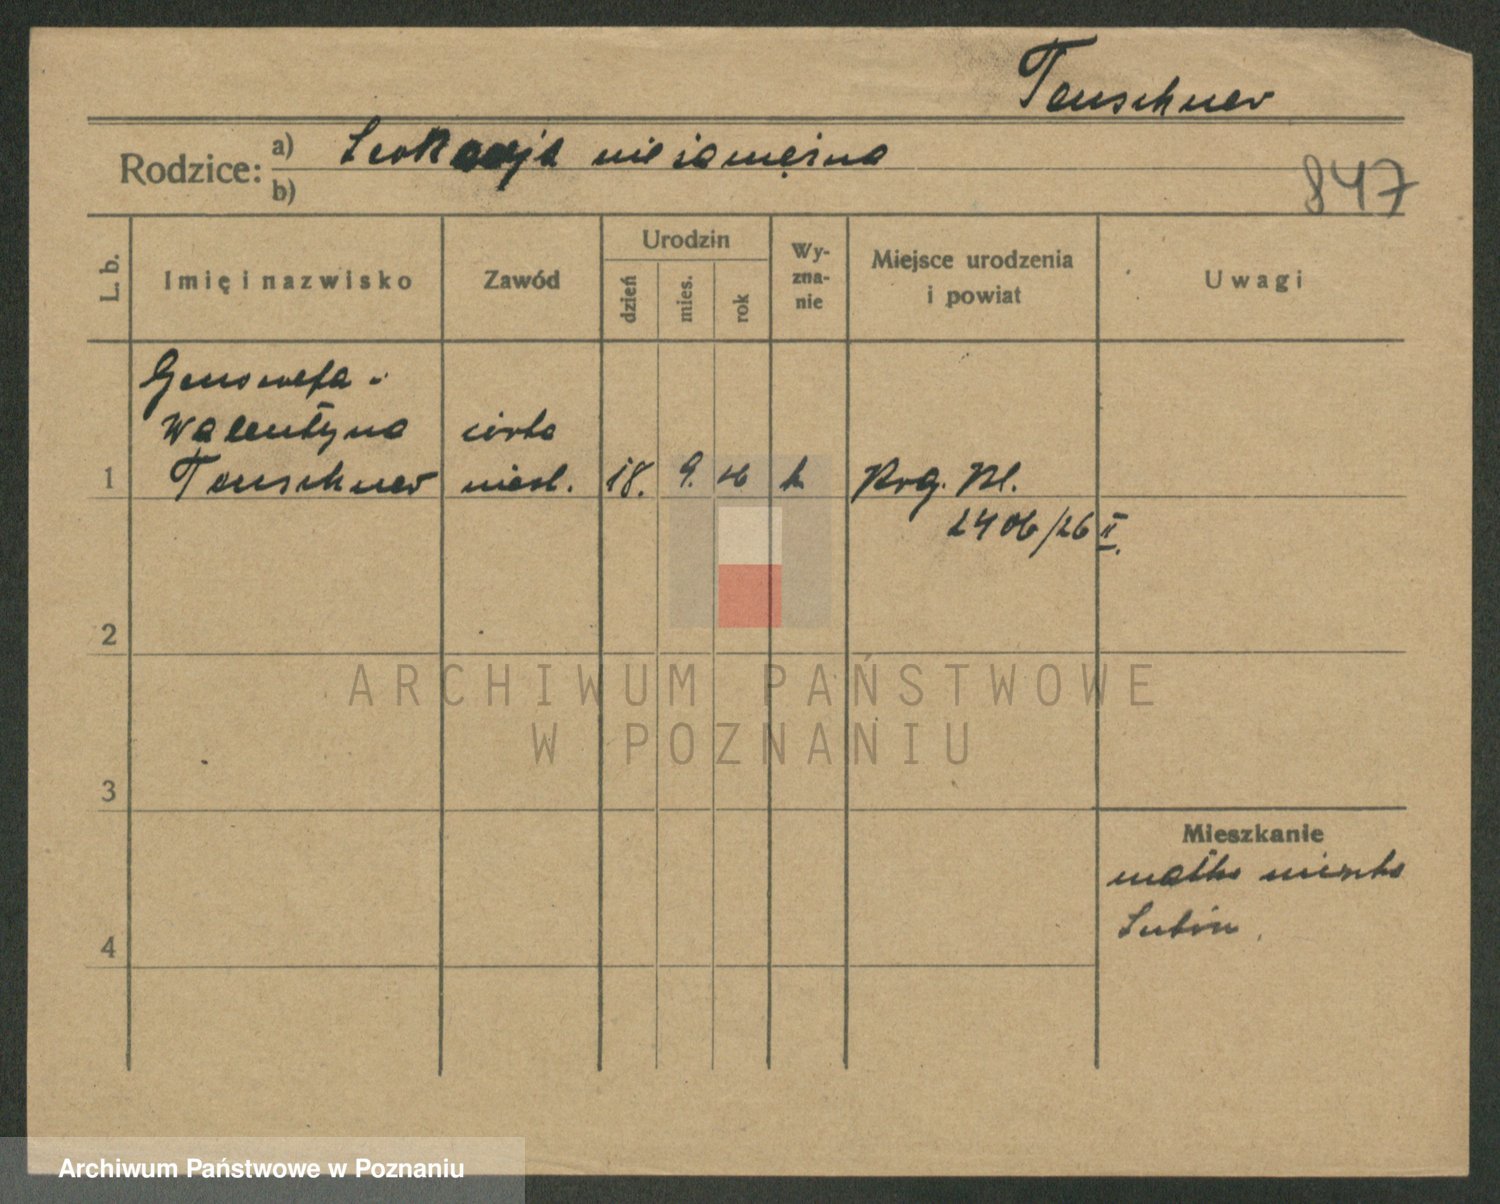 Teuschner
Rodzice: a) Leokadja niezamężna
b)
847
L. b.
Imię i nazwisko
Zawód
Urodzin
dzień
mies.
rok
Wy-
zna-
nie
Miejsce urodzenia
i powiat
Uwagi
Genowefa -
Walentyna
Teuschner
córka
nieśl.
1
18.
9.
26
k.
Prg. Pl.
2406/26 II.
2
3
4
Mieszkanie
matka mieszka
Lubin.
ARCHIWUM PAŃSTWOWE
W POZNANIU
Archiwum Państwowe w Poznaniu